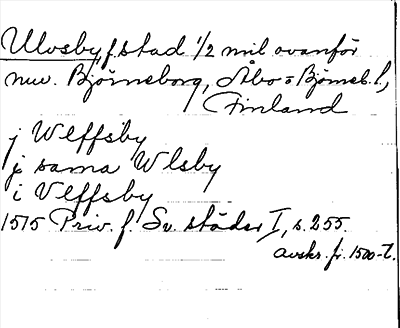 Ulvsby, f. stad 1/2 mil ovanför
nuv. Björneborg, Åbo=Björneb. l.,
Finland
j Wlffsby
j sama Wlsby
i Vlffsby
1515 Priv. f. Sv. städer I, s. 255
avskr. fr. 1500-t.